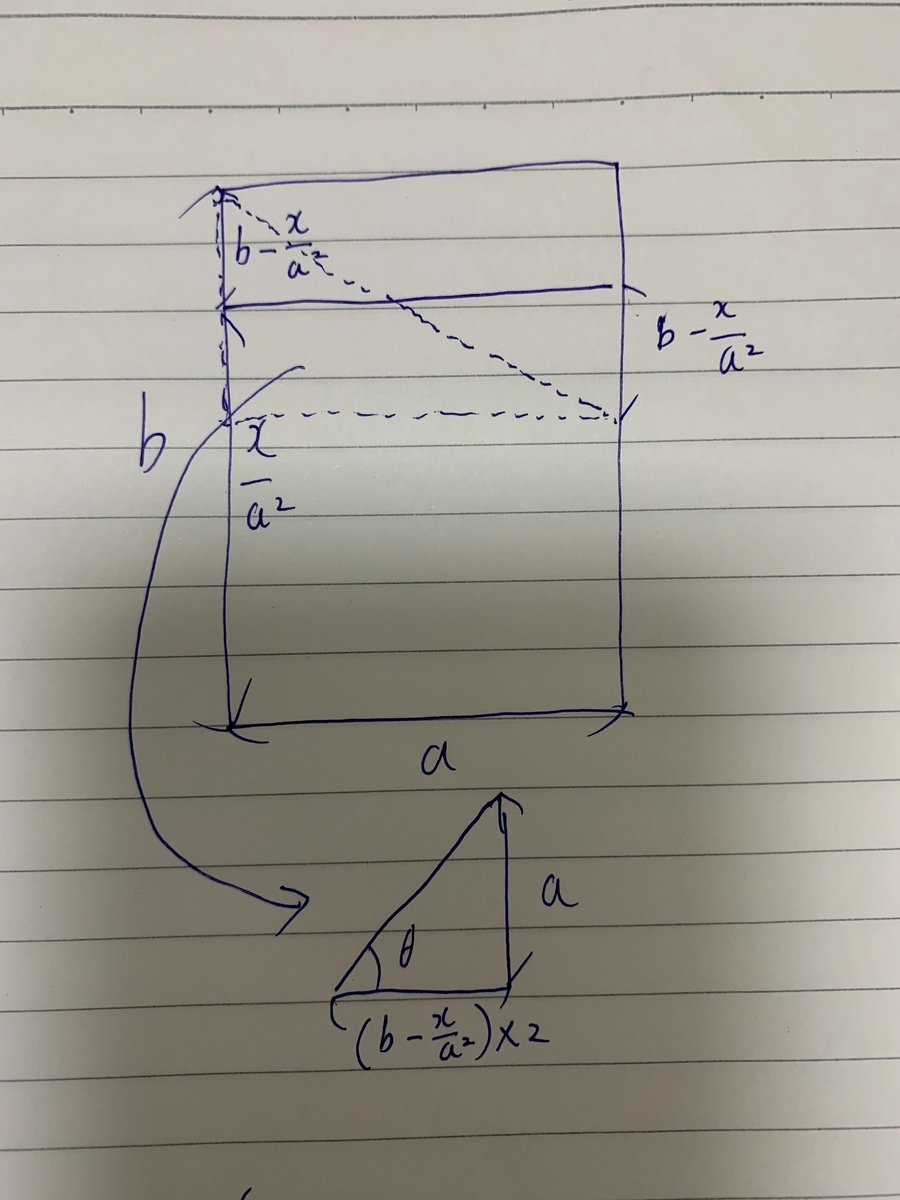 b - x/a²
b - x/a²
b
x/a²
a
a
θ
(b - x/a²)×2